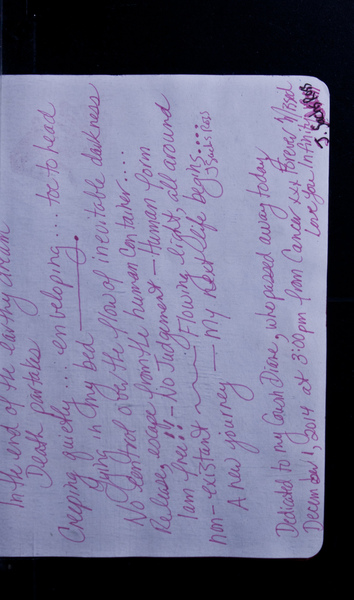 In the end of the earthy dream
Death partakes
Creeping quietly... enveloping... toe to head
lying in my bed
No control over the flow of inevitable darkness
Release, escape from the human container...
I am free!! - No Judgement - Human form
non-existant Flowing light, all around
A new journey — My next life begins....
Dedicated to my Cousin Diane, who passed away today
December 1, 2014 at 3:00pm from Cancer xx Forever Missed
Love you Infinity